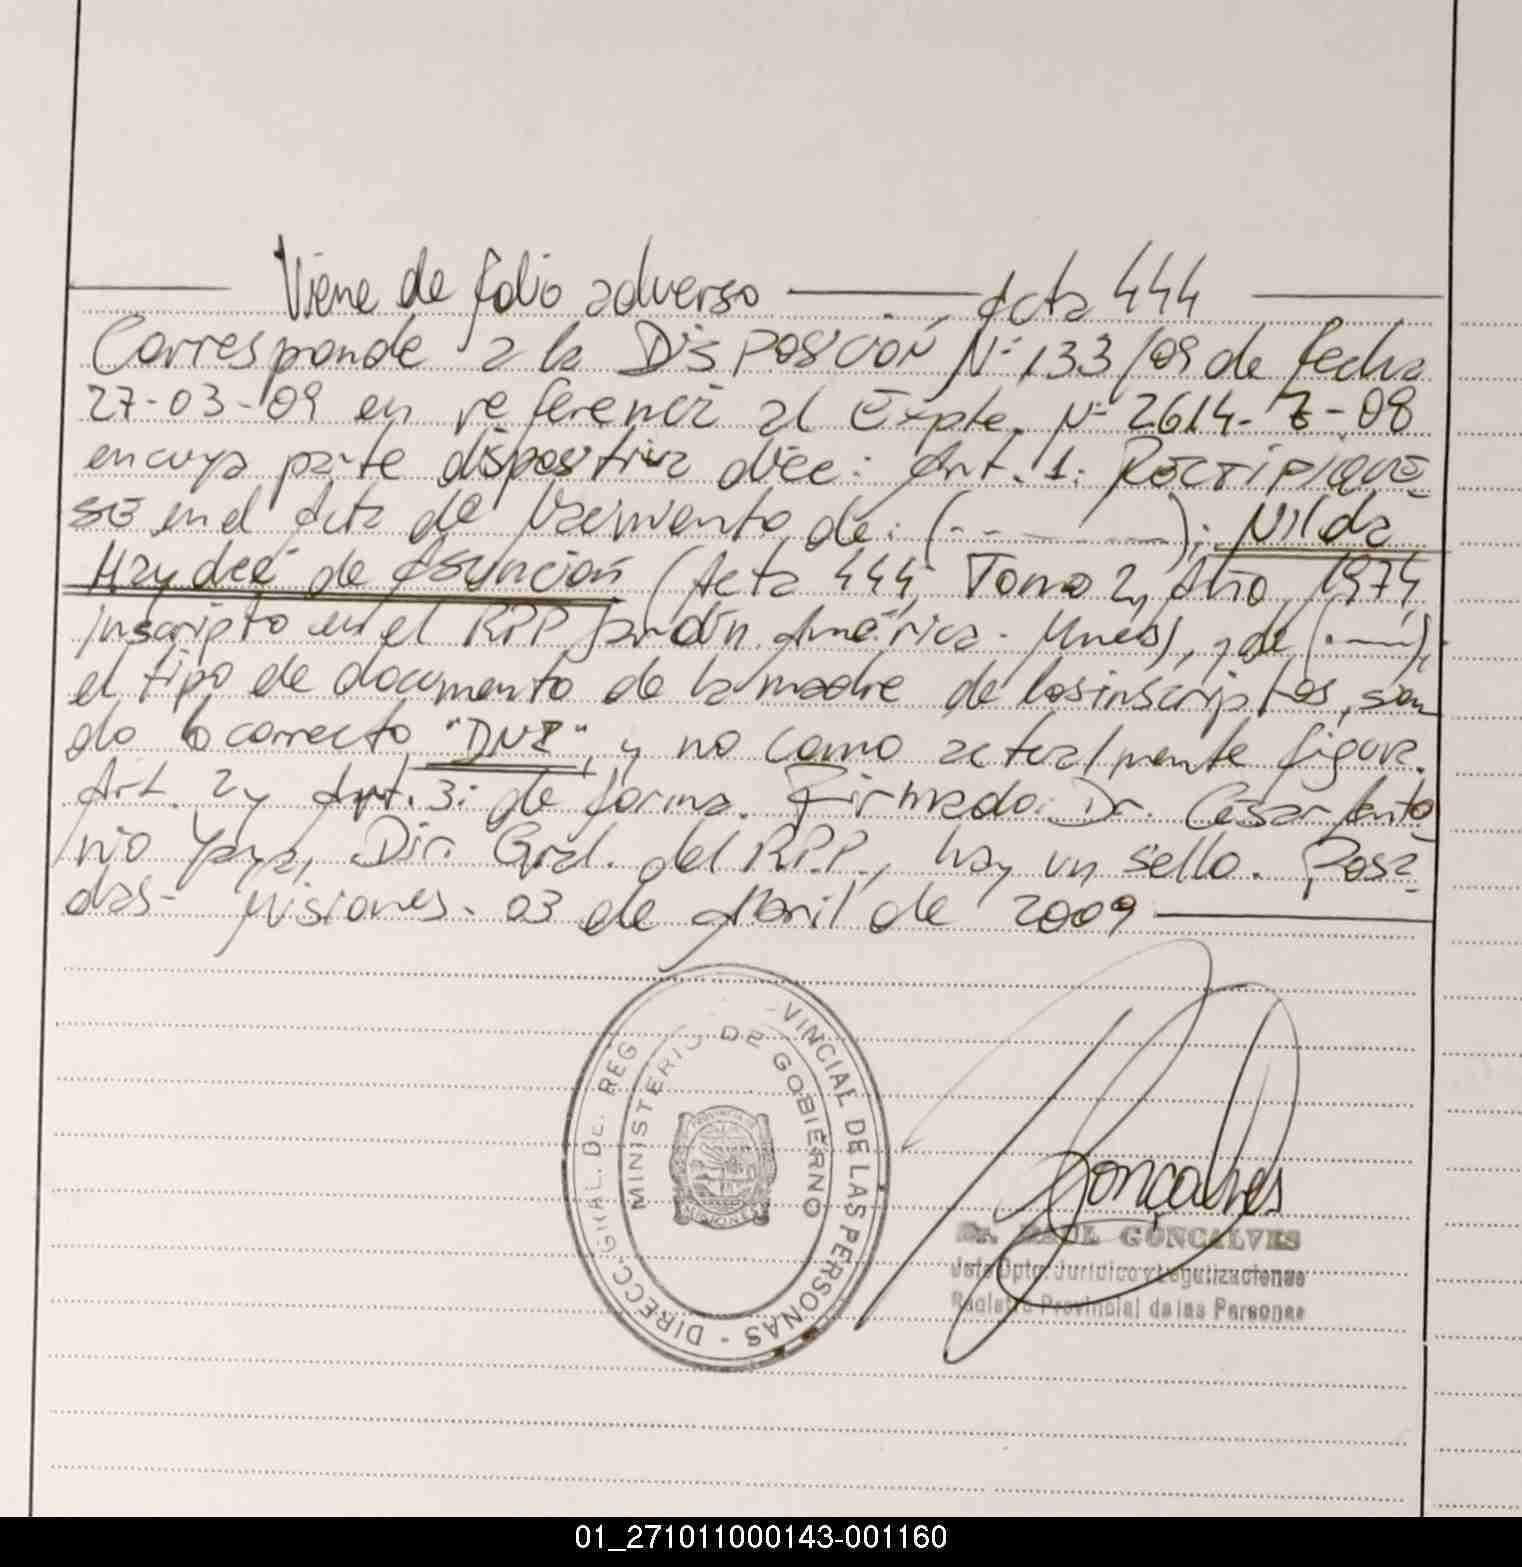 Viene de folio adverso Acta 444
Corresponde a la DISPOSICIÓN N° 133/09 de fecha
27-03-09 en referencia al Expte. N° 2614-Z-08
en cuya parte dispositiva dice: Art. 1: RECTIFIQUE-
SE en el Acta de Nacimiento de: (- - - -); Nilda
Haydeé de Asunción (Acta 444, Tomo 2, Año 1974
inscripto en el RPP Jardín América - Mnes), y de (- —),
el tipo de documento de la madre de los inscriptos, sien
do lo correcto "DNI", y no como actualmente figura.
Art. 2 y Art. 3: de forma. Firmado: Dr. César Anto
nio Yaya, Dir. Gral. del RPP, hay un sello. Posa-
das - Misiones. 03 de Abril de 2009
DIRECC. GRAL. DEL REG VINCIAL DE LAS PERSONAS -
MINISTERIO DE GOBIERNO
PROVINCIA DE
MISIONES
Gonçalves
Dr. RAUL GONCALVES
Jefe Dpto. Jurídico y Legalizaciones
Registro Provincial de las Personas
01_271011000143-001160